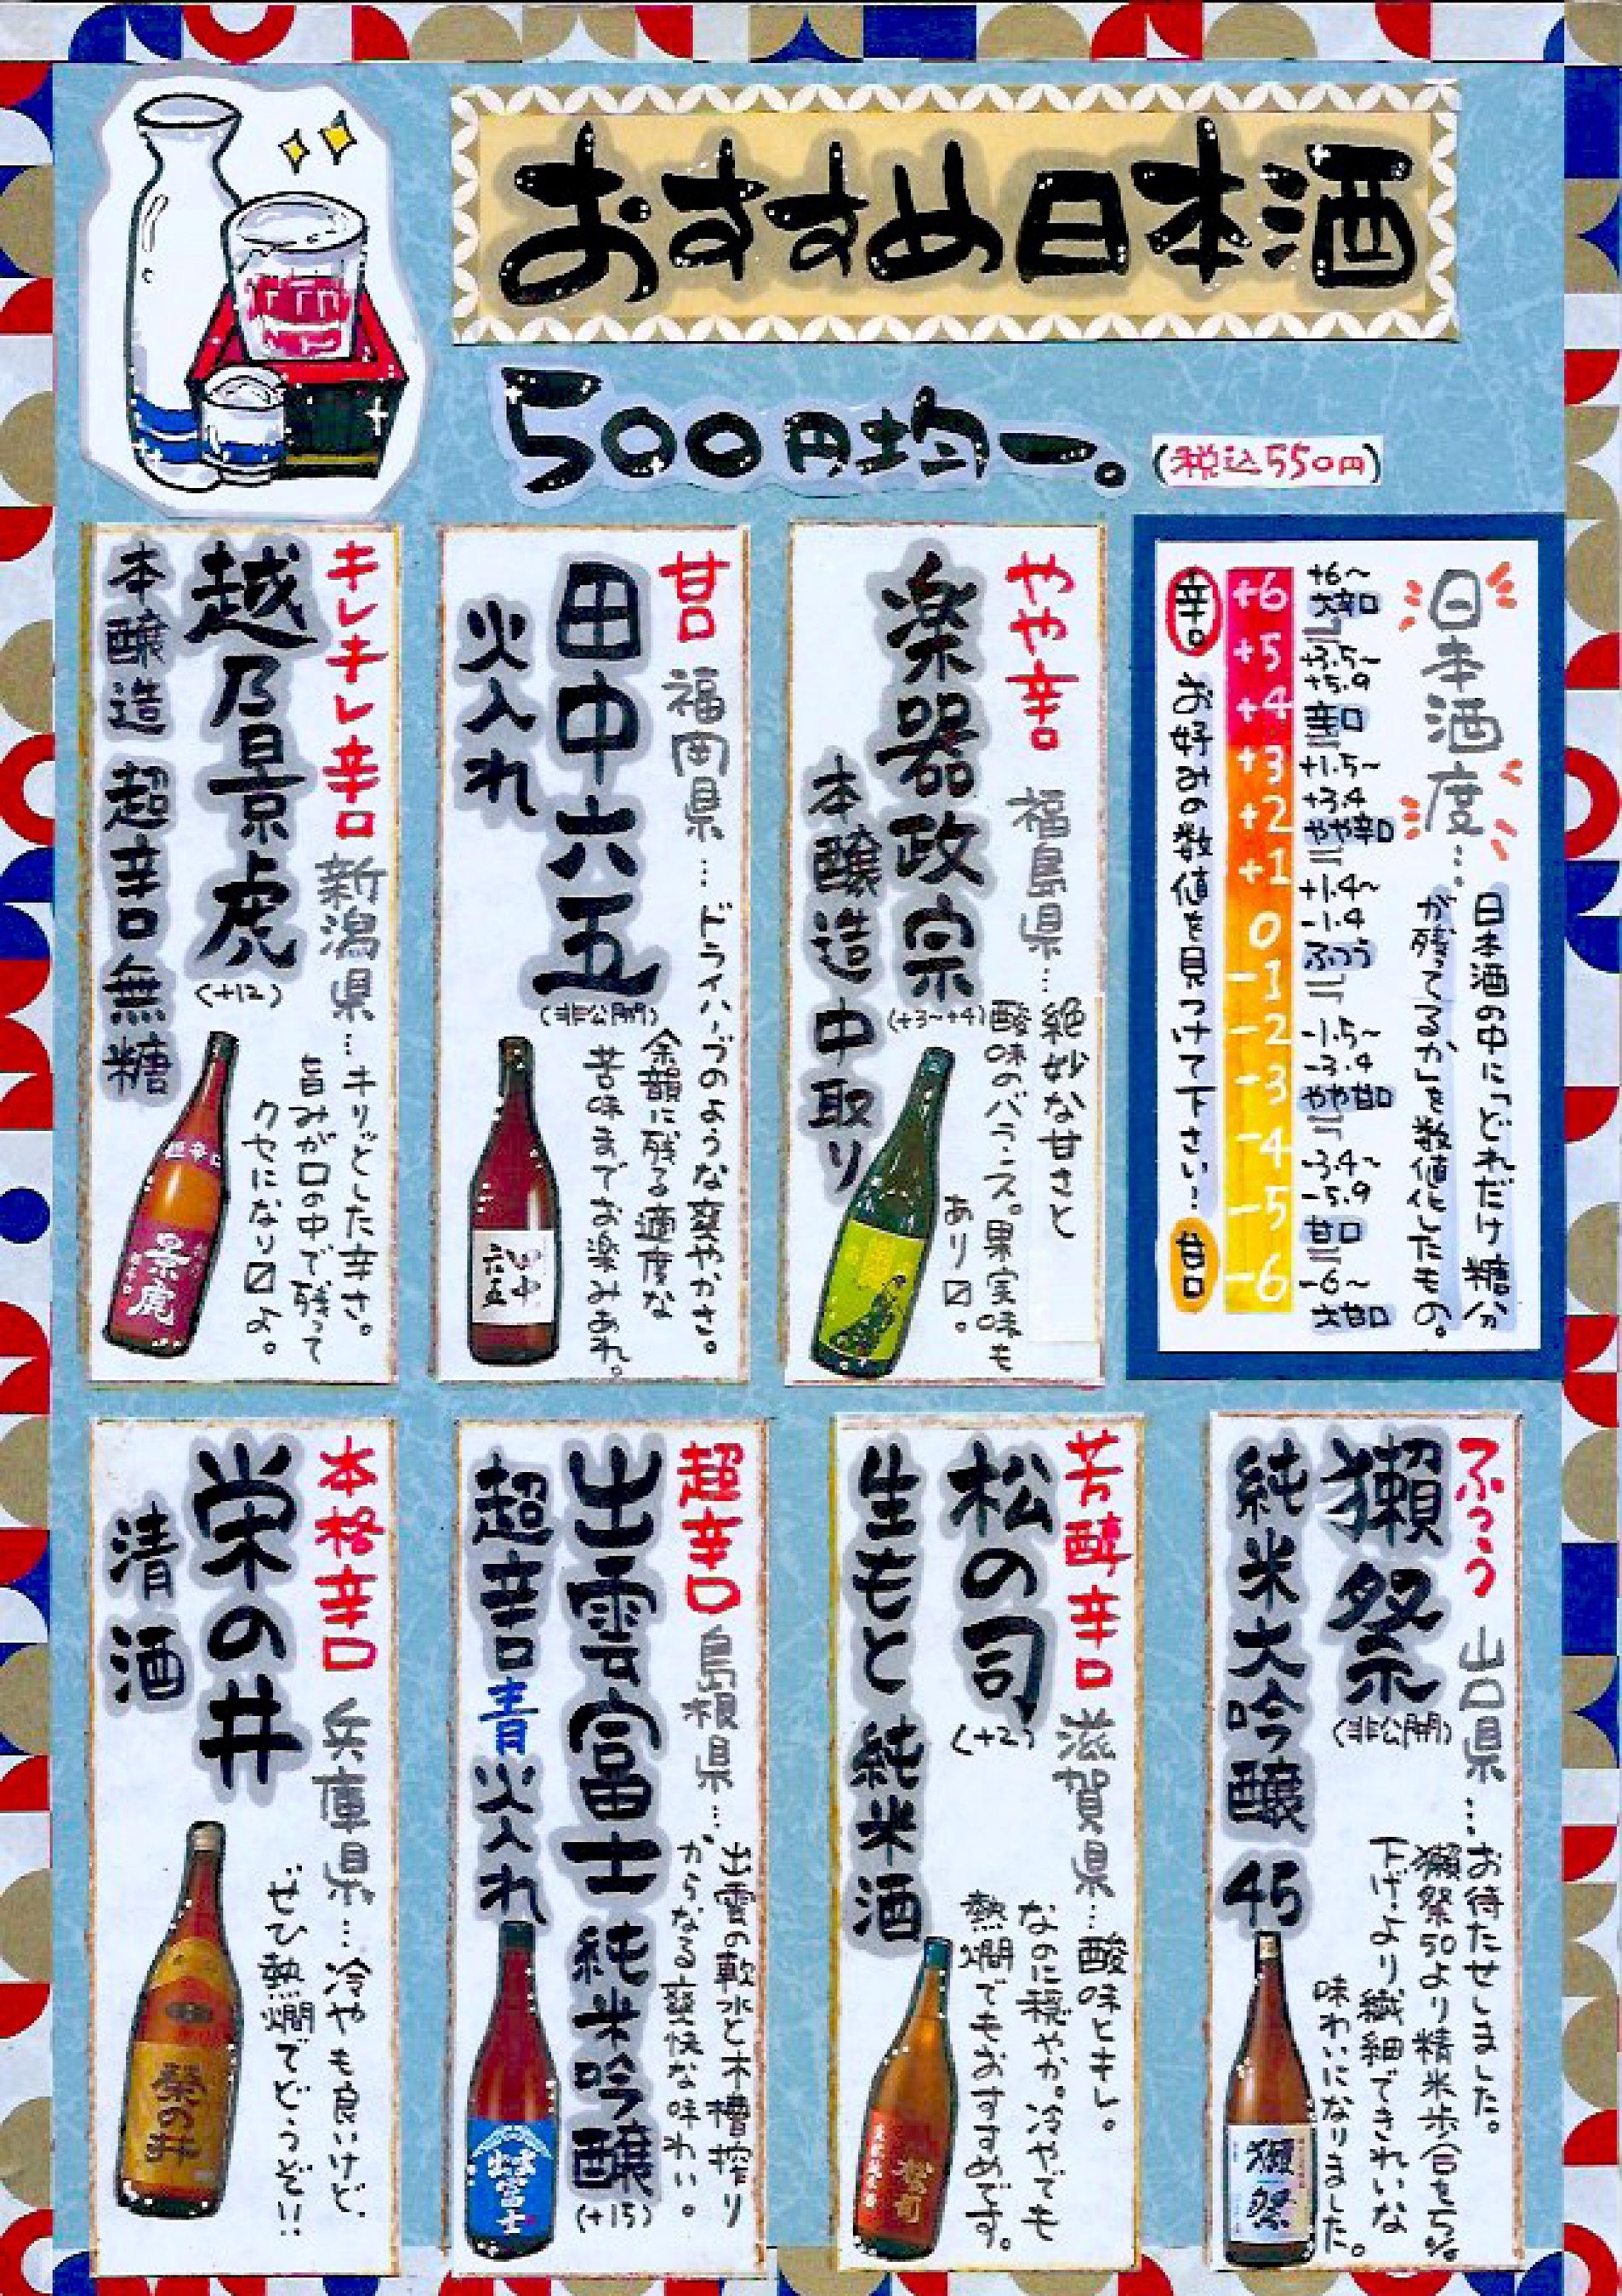 おすすめ日本酒
500円均一。
(税込550円)
日本酒度…
日本酒の中に「どれだけ糖分
が残ってるか」を数値化したもの。
+6~
大辛口
+3.5~
+5.9
辛口
+1.5~
+3.4
やや辛口
+1.4~
-1.4
ふつう
-1.5~
-3.4
やや甘口
-3.4~
-5.9
甘口
-6~
大甘口
+6
+5
+4
+3
+2
+1
0
-1
-2
-3
-4
-5
-6
辛口
お好みの数値を見つけて下さい!
甘口
やや辛口
福島県…
絶妙な甘さと
酸味のバランス。果実味も
あり〼。
楽器政宗
(+3~+4)
本醸造中取り
甘口
福岡県…
ドライハーブのような爽やかさ。
余韻に残る適度な
苦味までお楽みあれ。
田中六五
(非公開)
火入れ
田中
六五
キレキレ辛口
新潟県…
キリッとした辛さ。
旨みが口の中で残って
クセになり〼よ。
越乃景虎
(+12)
本醸造 超辛口無糖
超辛口
景虎
ふつう
山口県…
お待たせしました。
獺祭50より精米歩合を5%
下げ、より繊細できれいな
味わいになりました。
獺祭
(非公開)
純米大吟醸 45
獺祭
芳醇辛口
滋賀県…
酸味とキレ。
なのに穏やか。冷やでも
熱燗でもおすすめです。
松の司
(+2)
生もと純米酒
松の司
超辛口
島根県…
出雲の軟水と木槽搾り
からなる爽快な味わい。
出雲富士 純米吟醸
(+15)
超辛口青火入れ
出雲富士
本格辛口
兵庫県…
冷やも良いけど、
ぜひ熱燗でどうぞ!!
栄の井
清酒
榮の井